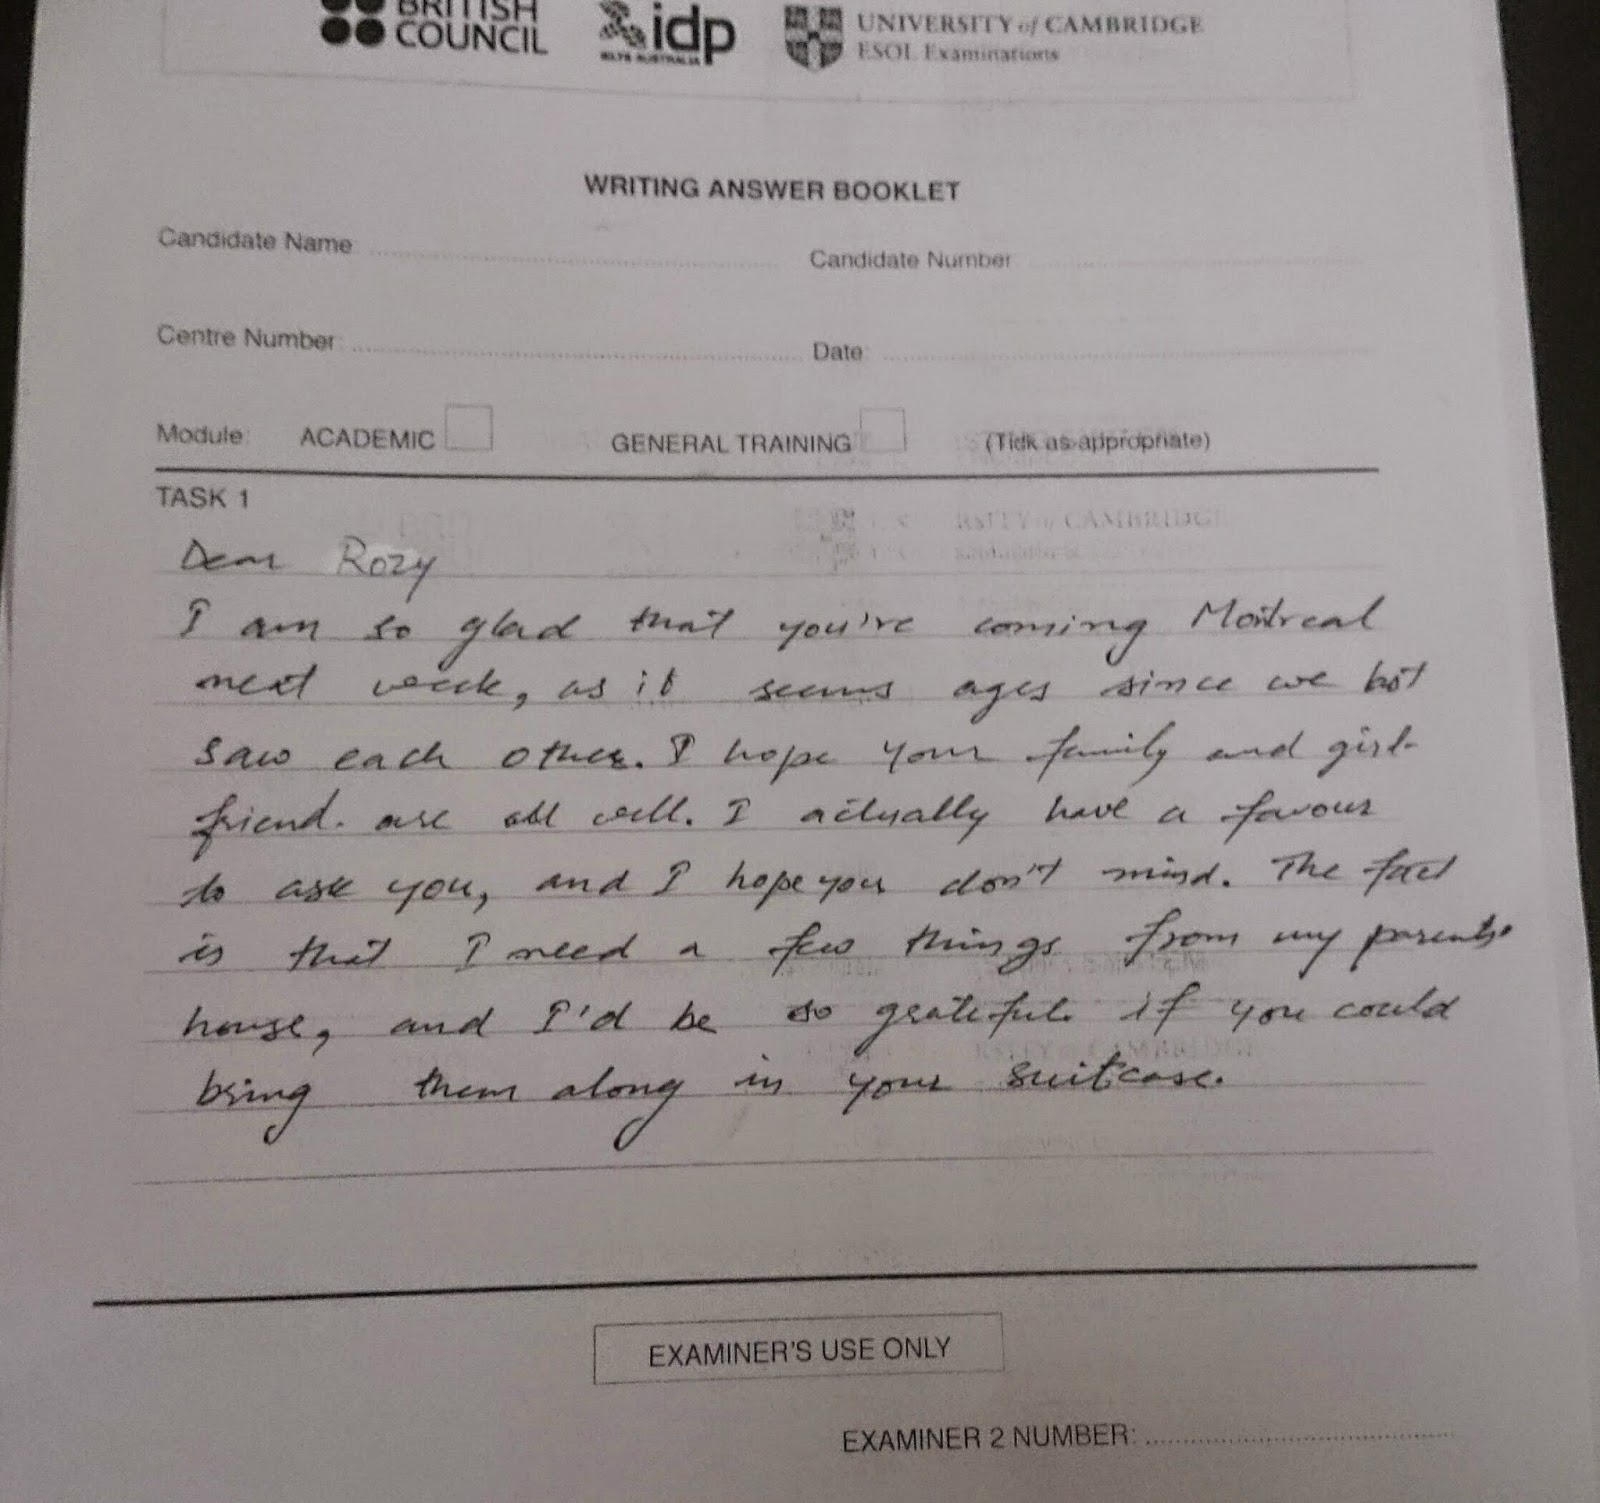 BRITISH
COUNCIL
idp
IELTS AUSTRALIA
UNIVERSITY of CAMBRIDGE
ESOL Examinations
WRITING ANSWER BOOKLET
Candidate Name
Candidate Number
Centre Number:
Date:
Module: ACADEMIC GENERAL TRAINING (Tick as appropriate)
TASK 1
Dear Rozy
I am so glad that you're coming Montreal
next week, as it seems ages since we
saw each other. I hope your family and girl-
friend. are all well. I actually have a favour
to ask you, and I hope you don't mind. The fact
is that I need a few things from my parents'
house, and I'd be so grateful. if you could
bring them along in your suitcase.
EXAMINER'S USE ONLY
EXAMINER 2 NUMBER: